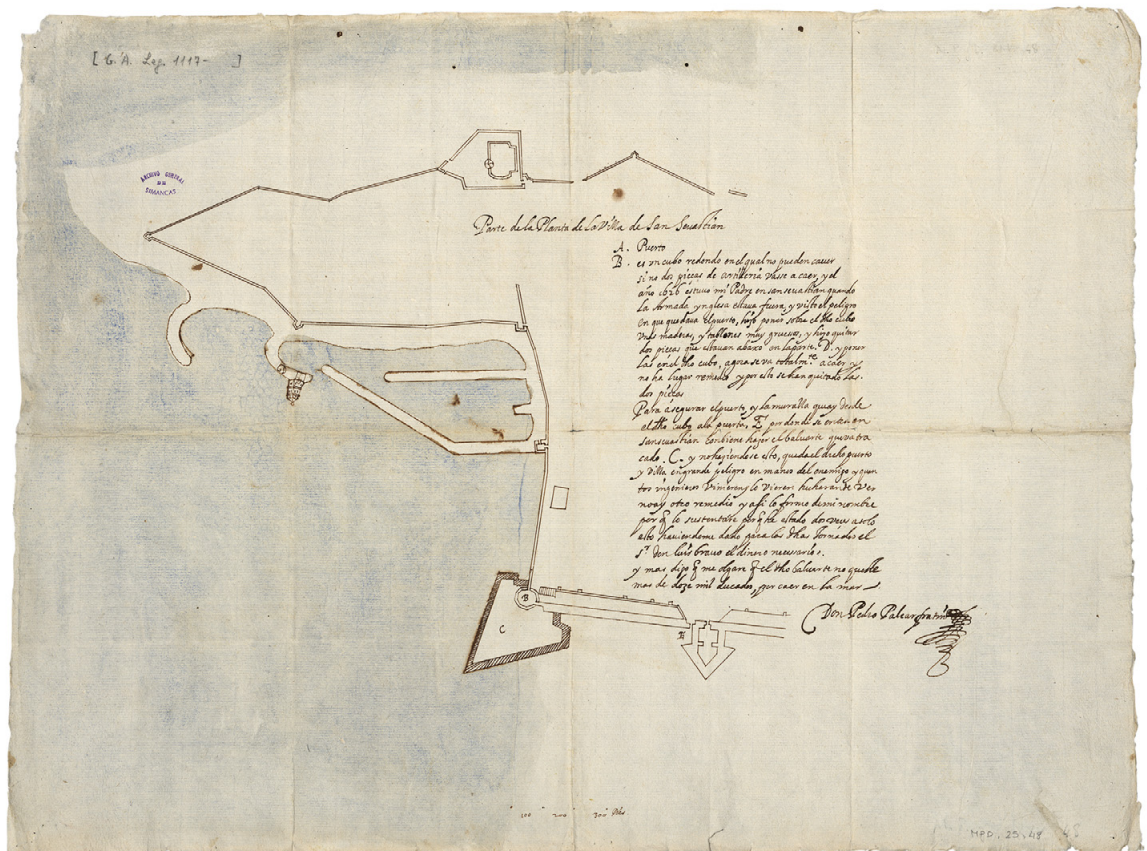 [ G.A. Leg. 1117- ]
ARCHIVO GENERAL
DE
SIMANCAS
Parte de la Planta de La Villa de San Sevastian
A. Puerto
B. es un cubo redondo en el qual no pueden caver
sino dos pieças de artilleria vasse a caer, y el
año 1626 estuvo mi Padre en san sevastian quando
la Armada ynglesa estava fuera, y visto el peligro
en que quedava el puerto, hiço poner sobre el dho cubo
unas maderas, y tablones muy gruesos, y hiço quitar
dos pieças que estavan abaxo en la parte. D. y poner
las en el dho cubo, agora se va totalmte a caer y
no ha lugar remedio y por esto se han quitado las
dos pieças
Para asegurar el puerto, y la muralla que ay desde
el dho cubo a la puerta, E por donde se entra en
san sevastian conbiene hazer el baluarte que va tra
cado. C. y no haziendose esto, queda el dicho puerto
y Villa en grande peligro en manos del enemigo y quan
tos ingenieros vinieren y lo vieren
no ay otro remedio y assi lo firmo de mi nombre
por q lo sustentare porq he estado dos veces a solo
esto haviendome dado para las dhas Jornadas el
sr Don luis bravo el dinero necessario.
y mas digo q me q el dho baluarte no
mas de doze mil ducados, por caer en la mar
Don Pedro Palear fratin
B
C
E
100 200 300
MPD, 25, 48